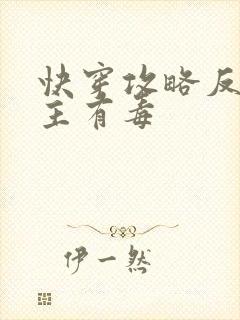 快穿攻略反
主有毒
伊一然